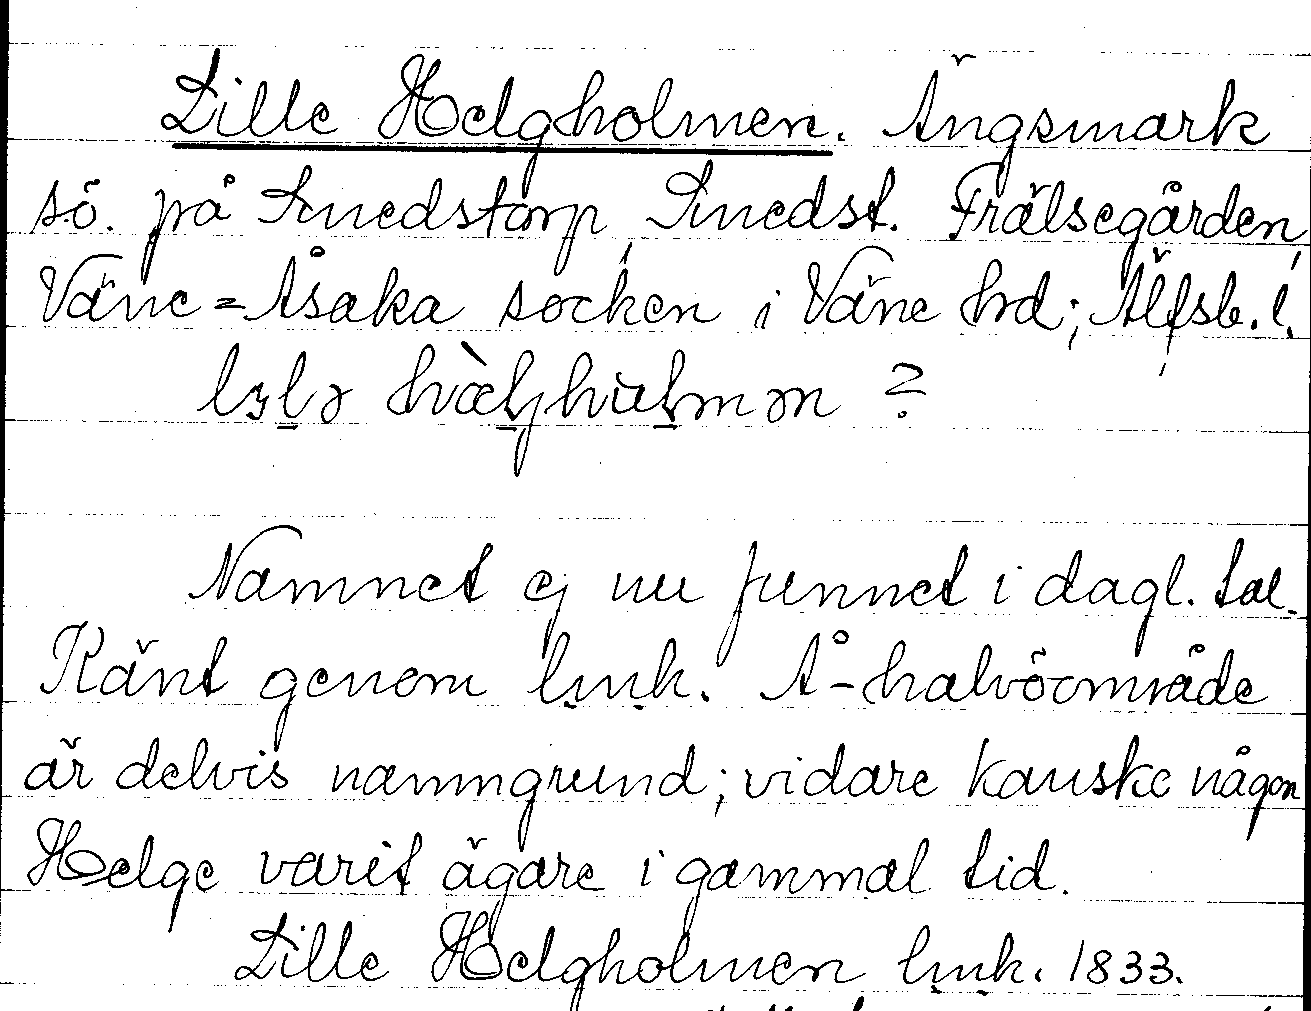 Lille Helgholmen. Ängsmark
sö. på Smedstorp, Smedst. Frälsegården,
Väne=Åsaka socken i Väne hrd; Älfsb. l.
Namnet ej nu funnet i dagl. tal.
Känt genom lmk. Å-halvöområde
är delvis namngrund; vidare kanske någon
Helge varit ägare i gammal tid.
Lille Helgholmen lmk. 1833.